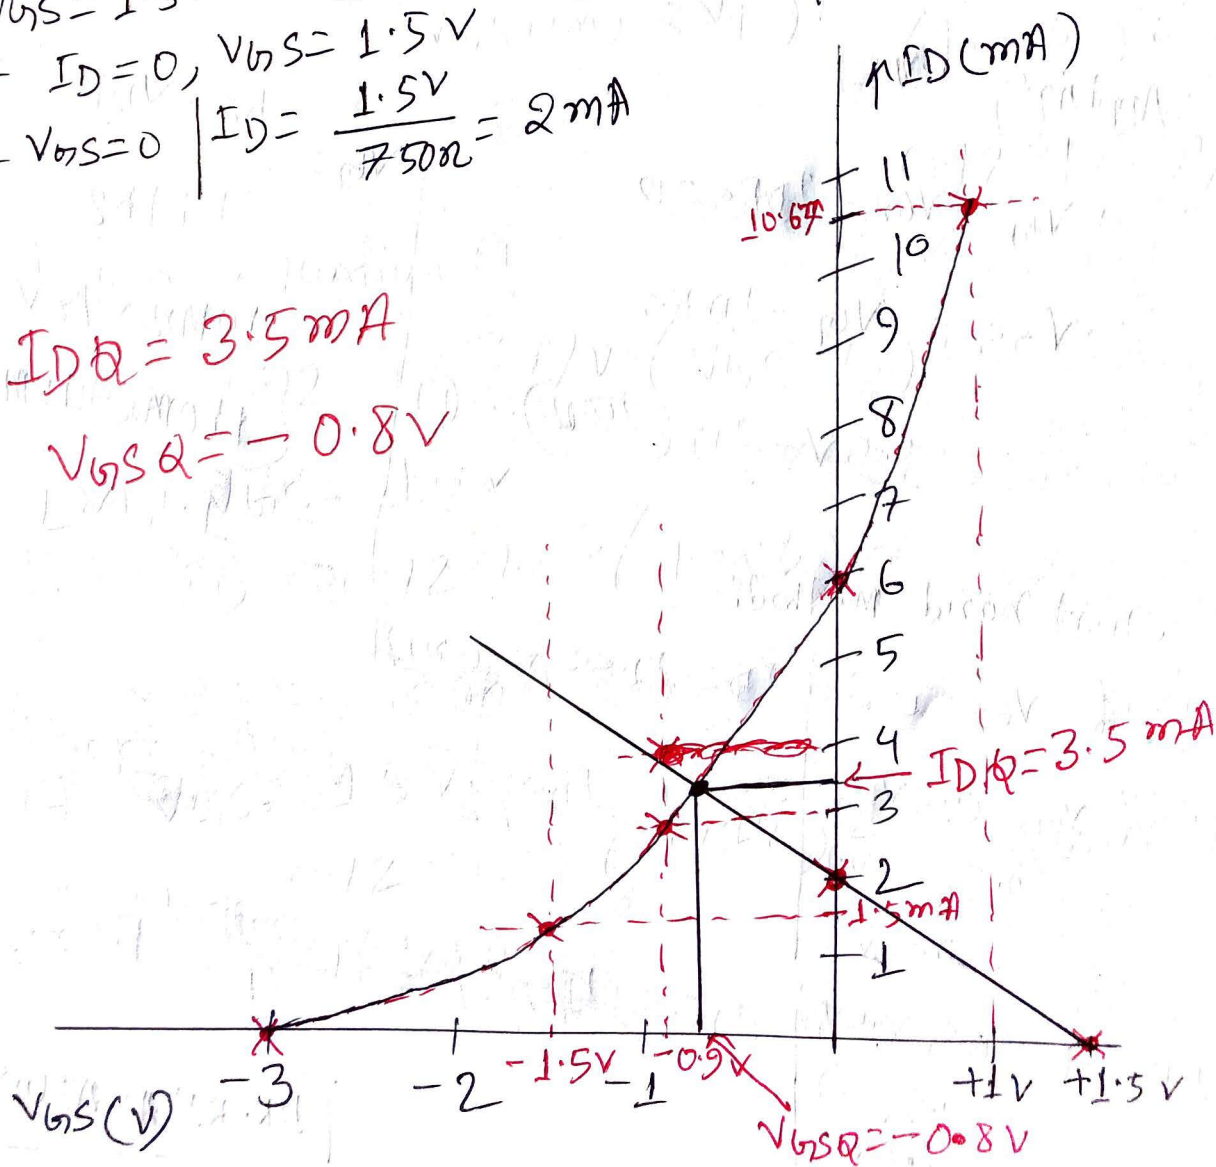 VGS = 1.5
ID = 0, VGS = 1.5 V
VGS = 0 | ID = 1.5V / 750Ω = 2 mA
IDQ = 3.5 mA
VGSQ = - 0.8 V
↑ID (mA)
11
10.67
10
9
8
7
6
5
4
IDQ = 3.5 mA
3
2
1.5mA
1
-3
-2
-1.5V
-1
-0.9V
+1V
+1.5 V
VGS (V)
VGSQ = -0.8 V